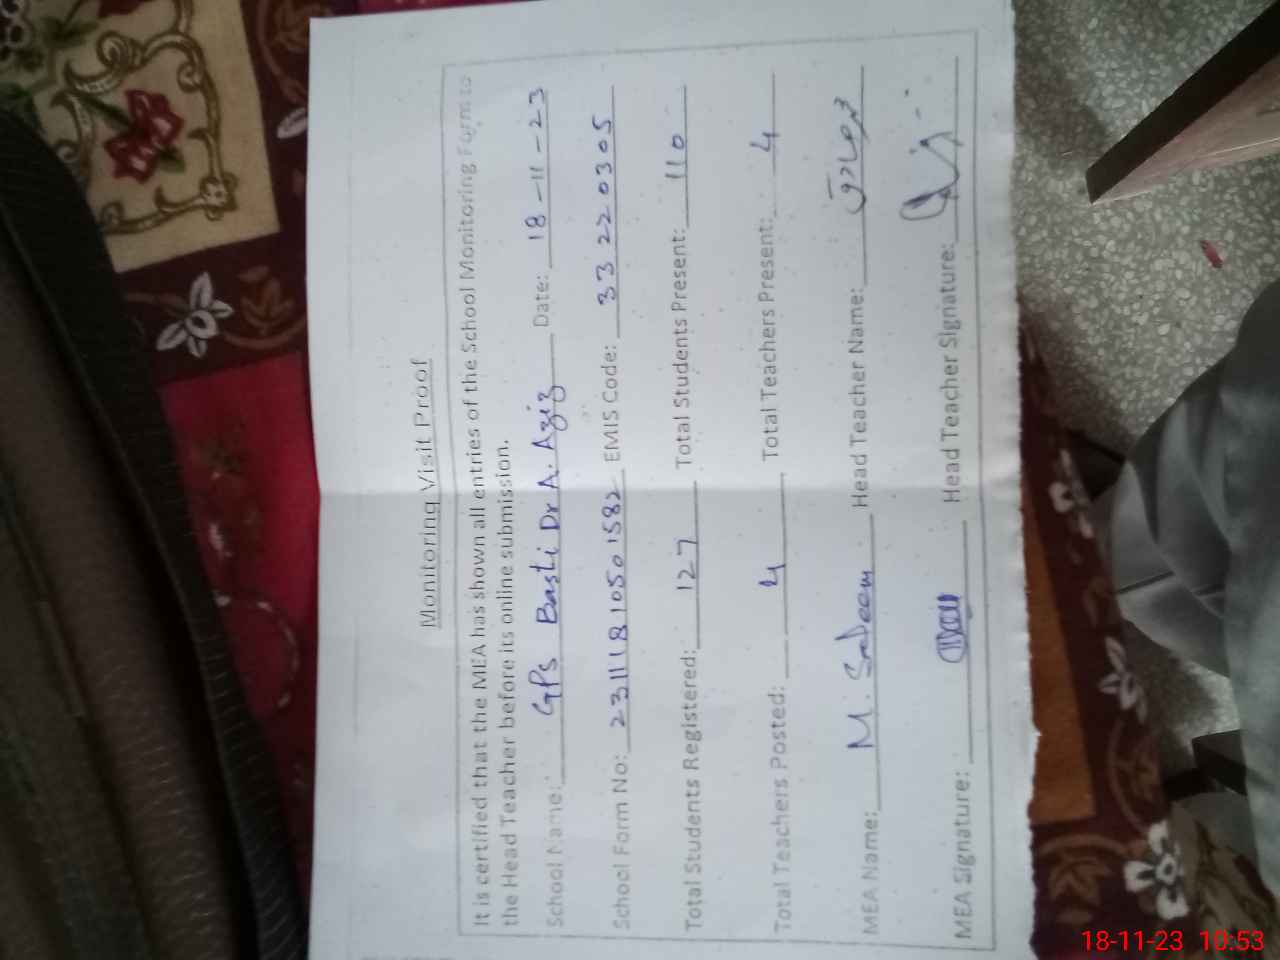 Monitoring Visit Proof
It is certified that the MEA has shown all entries of the School Monitoring Form to
the Head Teacher before its online submission.
School Name: GPS Basti Dr A. Aziz Date: 18-11-23
School Form No: 23111810501582 EMIS Code: 33220305
Total Students Registered: 127 Total Students Present: 110
Total Teachers Posted: 4 Total Teachers Present: 4
MEA Name: M. Sadeem Head Teacher Name:
MEA Signature: Head Teacher Signature:
18-11-23 10:53